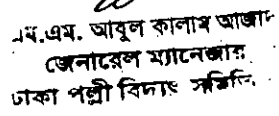 এম.এম. আবুল কালাম আজাদ
জেনারেল ম্যানেজার
ঢাকা পল্লী বিদ্যুৎ সমিতি